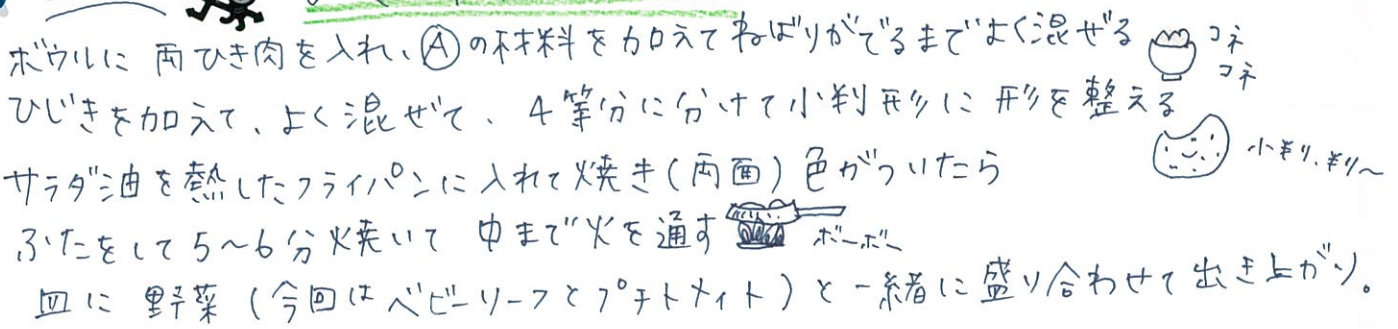 ボウルに 両ひき肉を入れ、Ⓐの材料を加えてねばりがでるまでよく混ぜる コネコネ
ひじきを加えて、よく混ぜて、4等分に分けて小判形に形を整える
小判、判〜
サラダ油を熱したフライパンに入れて焼き(両面)色がついたら
ふたをして5〜6分焼いて 中まで火を通す ボーボー
皿に 野菜(今回はベビーリーフとプチトメイト)と一緒に盛り合わせて出き上がり。